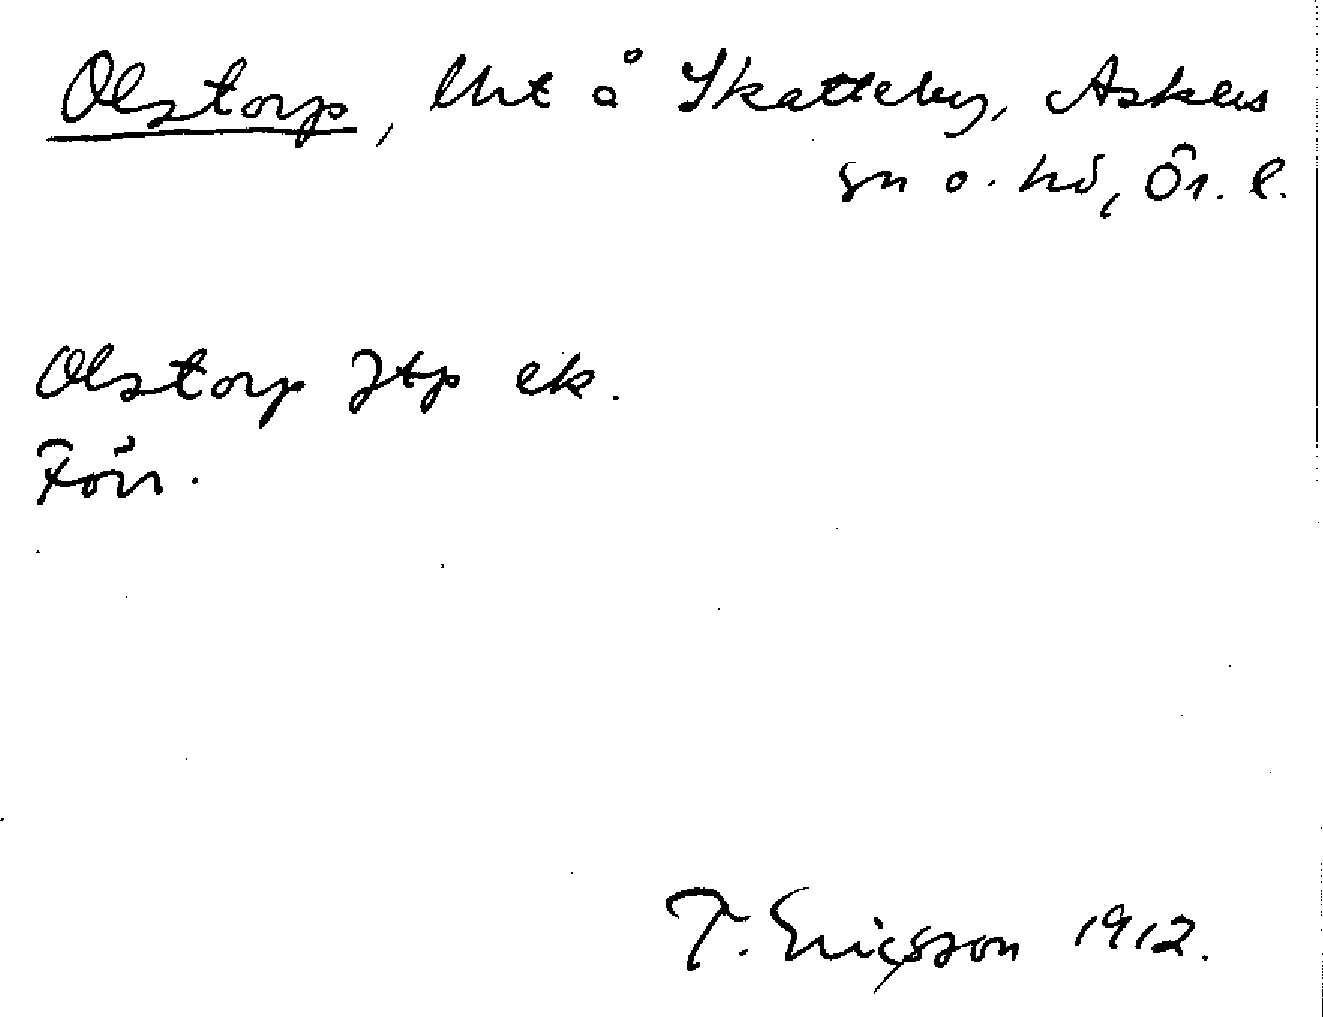 Olstorp, lht å Skatteby, Askers
sn o. hd, Ör. l.
Olstorp Jtp ek.
Förs.
T. Ericsson 1912.